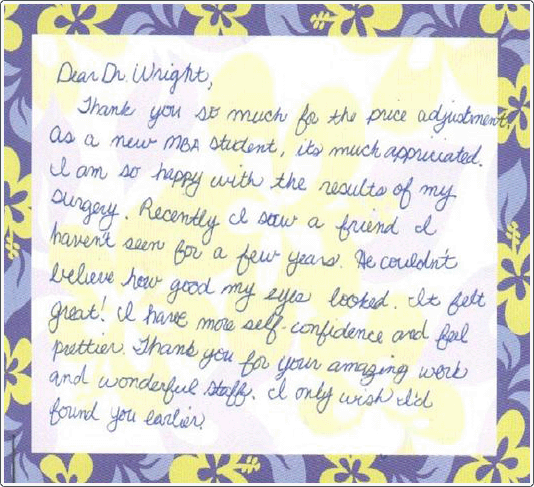 Dear Dr. Wright,
Thank you so much fo the price adjustment.
As a new MBA student, its much appriciated.
I am so happy with the results of my
surgery. Recently I saw a friend I
haven't seen for a few years. He couldn't
believe how good my eyes looked. It felt
great! I have more self-confidence and feel
prettier. Thank you for your amazing work
and wonderful staff. I only wish I'd
found you earlier.